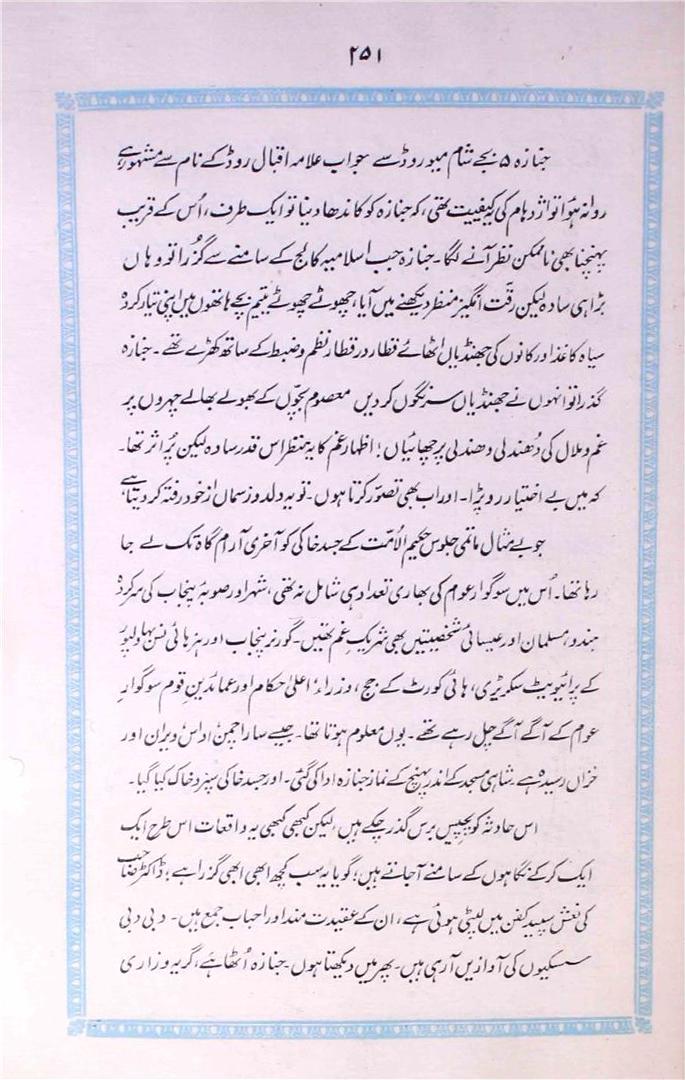 ۲۵۱
جنازہ ۵ بجے شام میو روڈ سے جو اب علامہ اقبال روڈ کے نام سے مشہور ہے
روانہ ہوا تو اژدہام کی کیفیت تھی، کہ جنازہ کو کاندھا دینا تو ایک طرف، اُس کے قریب
پہنچنا بھی ناممکن نظر آنے لگا۔ جنازہ جب اسلامیہ کالج کے سامنے سے گزرا تو وہاں
بڑا ہی سادہ لیکن رقّت انگیز منظر دیکھنے میں آیا، چھوٹے چھوٹے یتیم بچے ہاتھوں میں اپنی تیار کردہ
سیاہ کاغذ اور کانوں کی جھنڈیاں اُٹھائے قطار در قطار نظم و ضبط کے ساتھ کھڑے تھے۔ جنازہ
گذرا تو انہوں نے جھنڈیاں سرنگوں کر دیں معصوم بچّوں کے بھولے بھالے چہروں پر
غم و ملال کی دُھندلی دھندلی پرچھائیاں؛ اظہارِ غم کا یہ منظر اس قدر سادہ لیکن پُر اثر تھا۔
کہ میں بے اختیار رو پڑا۔ اور اب بھی تصوّر کرتا ہوں۔ تو یہ دلدوز سماں از خود رفتہ کر دیتا ہے
جو بے مثال ماتمی جلوس حکیم الاُمّت کے جسدِ خاکی کو آخری آرام گاہ تک لے جا
رہا تھا۔ اُس میں سوگوار عوام کی بھاری تعداد ہی شامل نہ تھی، شہر اور صوبۂ پنجاب کی سرکردہ
ہندو، مسلمان اور عیسائی شخصیتیں بھی شریکِ غم تھیں۔ گورنر پنجاب اور ہز ہائی نس بہاولپور
کے پرائیویٹ سکریٹری، ہائی کورٹ کے جج، وزراء، اعلیٰ حکام اور عمائدینِ قوم سوگوار
عوام کے آگے آگے چل رہے تھے۔ یوں معلوم ہوتا تھا۔ جیسے سارا چمن اداس ویران اور
خزاں رسیدہ ہے شاہی مسجد کے اندر پہنچ کے نماز جنازہ ادا کی گئی۔ اور جسد خاکی سپردِ خاک کیا گیا۔
اس حادثہ کو پچیس برس گذر چکے ہیں، لیکن کبھی کبھی یہ واقعات اس طرح ایک
ایک کر کے نگاہوں کے سامنے آ جاتے ہیں؛ گویا یہ سب کچھ ابھی ابھی گزرا ہے؛ ڈاکٹر صاحب
کی نعش سپید کفن میں لپٹی ہوئی ہے، ان کے عقیدت مند اور احباب جمع ہیں۔ دبی دبی
سسکیوں کی آوازیں آ رہی ہیں۔ پھر میں دیکھتا ہوں۔ جنازہ اُٹھا ہے، گریہ و زاری